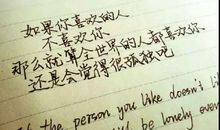 如果你喜欢的人
不喜欢你
那么就算全世界的人都喜欢你
还是会觉得很孤独吧
the person you like doesn't li
be lonely even